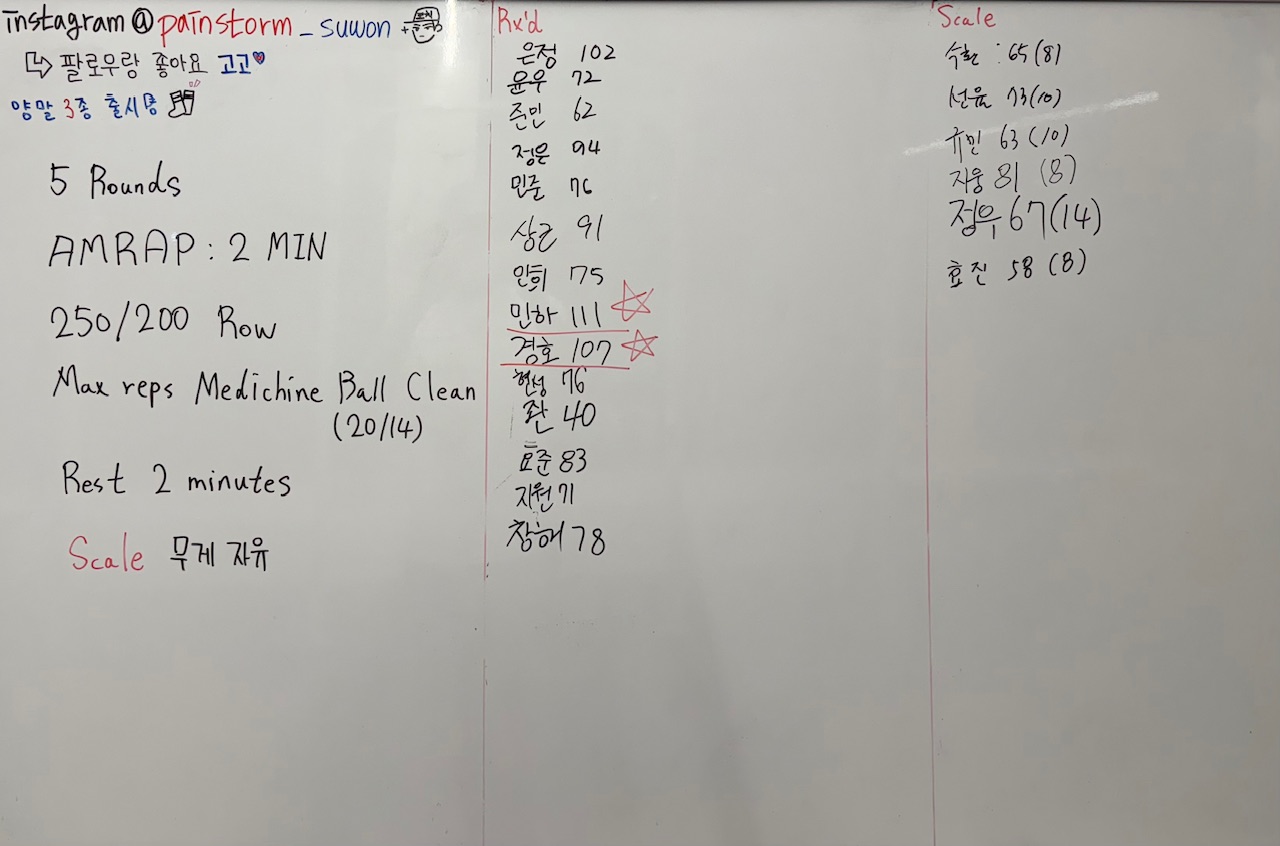 instagram@painstorm_suwon +
팔로우랑 좋아요 고고
양말 3종 출시
5 Rounds
AMRAP : 2 MIN
250/200 Row
Max reps Medichine Ball Clean
(20/14)
Rest 2 minutes
Scale 무게 자유
Rx'd
은정 102
윤우 72
준민 62
정은 94
민준 76
상근 91
안희 75
민하 111
경호 107
현성 76
좌 40
효준 83
지원 71
창해 78
Scale
: 65(8)
선윤 73(10)
규민 63(10)
지웅 81 (8)
정우 67(14)
효진 58 (8)